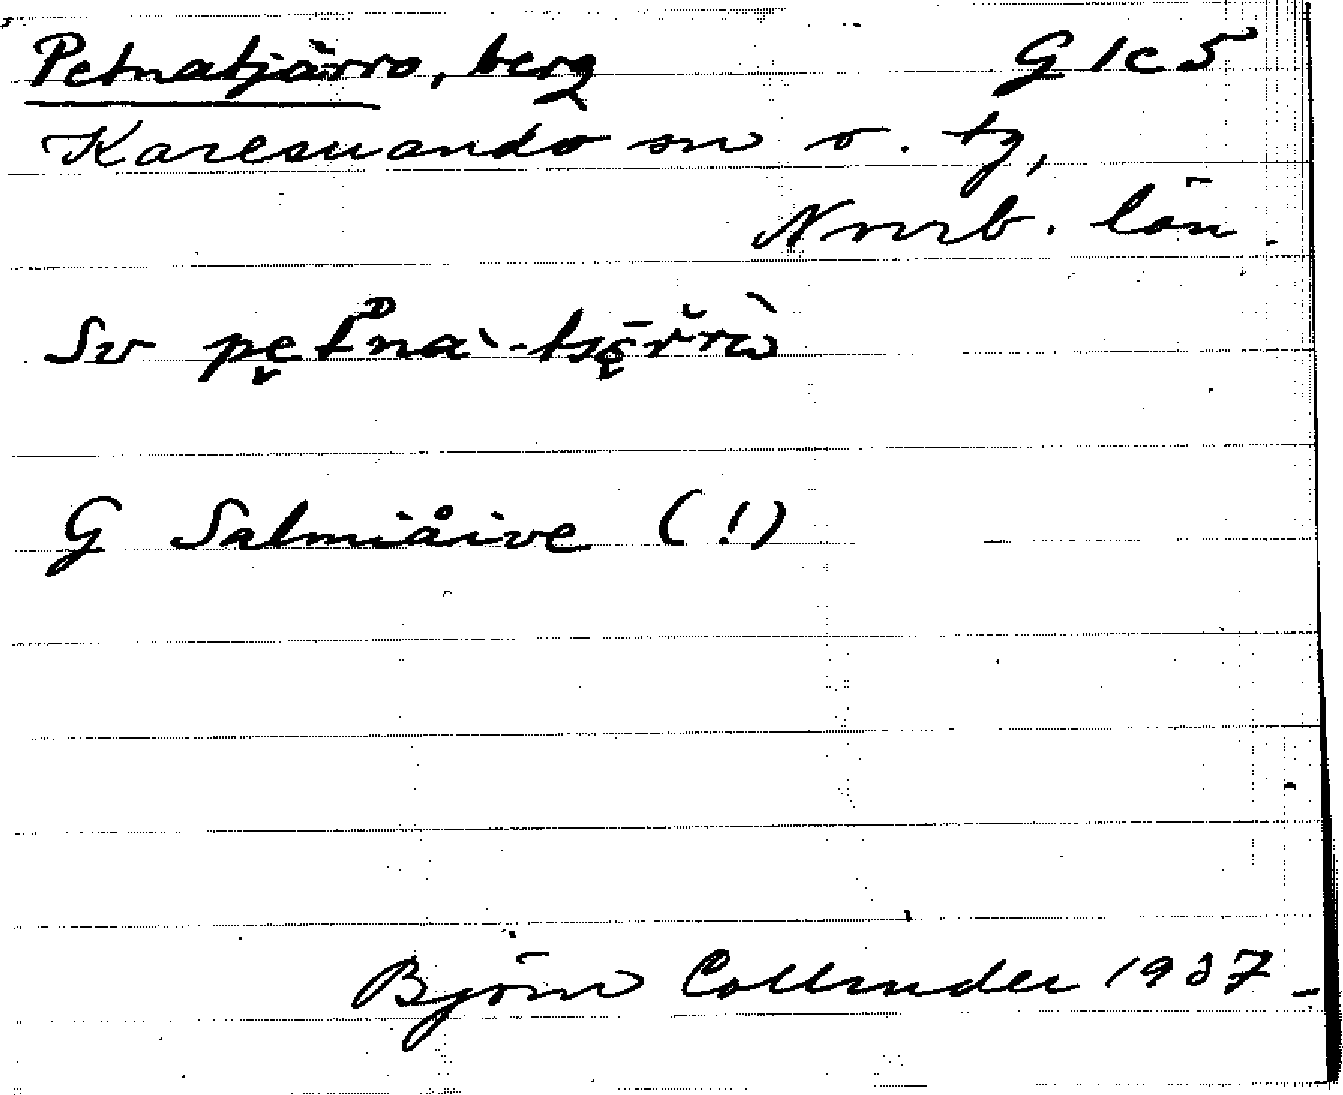 Petnatjärro, berg G 1c 5
Karesuando sn o. tg,
Norrb. län.
Sv
G Salmiåive (!)
Björn Collinder 1937